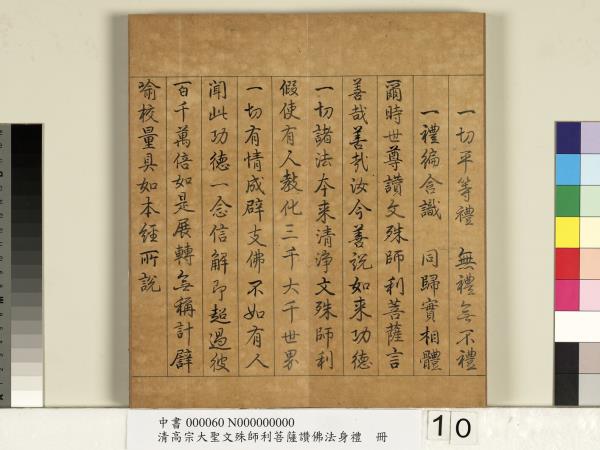 一切平等禮　無禮無不禮
一禮徧含識　同歸實相體
爾時世尊讚文殊師利菩薩言
善哉善哉汝今善說如來功德
一切諸法本来清淨文殊師利
假使有人教化三千大千世界
一切有情成辟支佛不如有人
聞此功德一念信解即超過彼
百千萬倍如是展轉無稱計譬
喻校量具如本經所說
中書 000060 N000000000
清高宗大聖文殊師利菩薩讚佛法身禮　冊
10